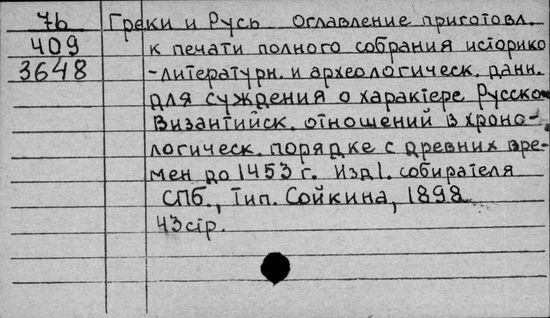 7b Греки и Русь Оглавление приготовл.
409 к печати полного собрания историко
3648 -литературн. и археологическ. данн.
для суждения о характере Русско-
Византийск. отношений в хроно-
логическ. порядке с древних вре-
мен до 1453 г. Изд1. собирателя
СПб., Тип. Сойкина, 1898
43стр.